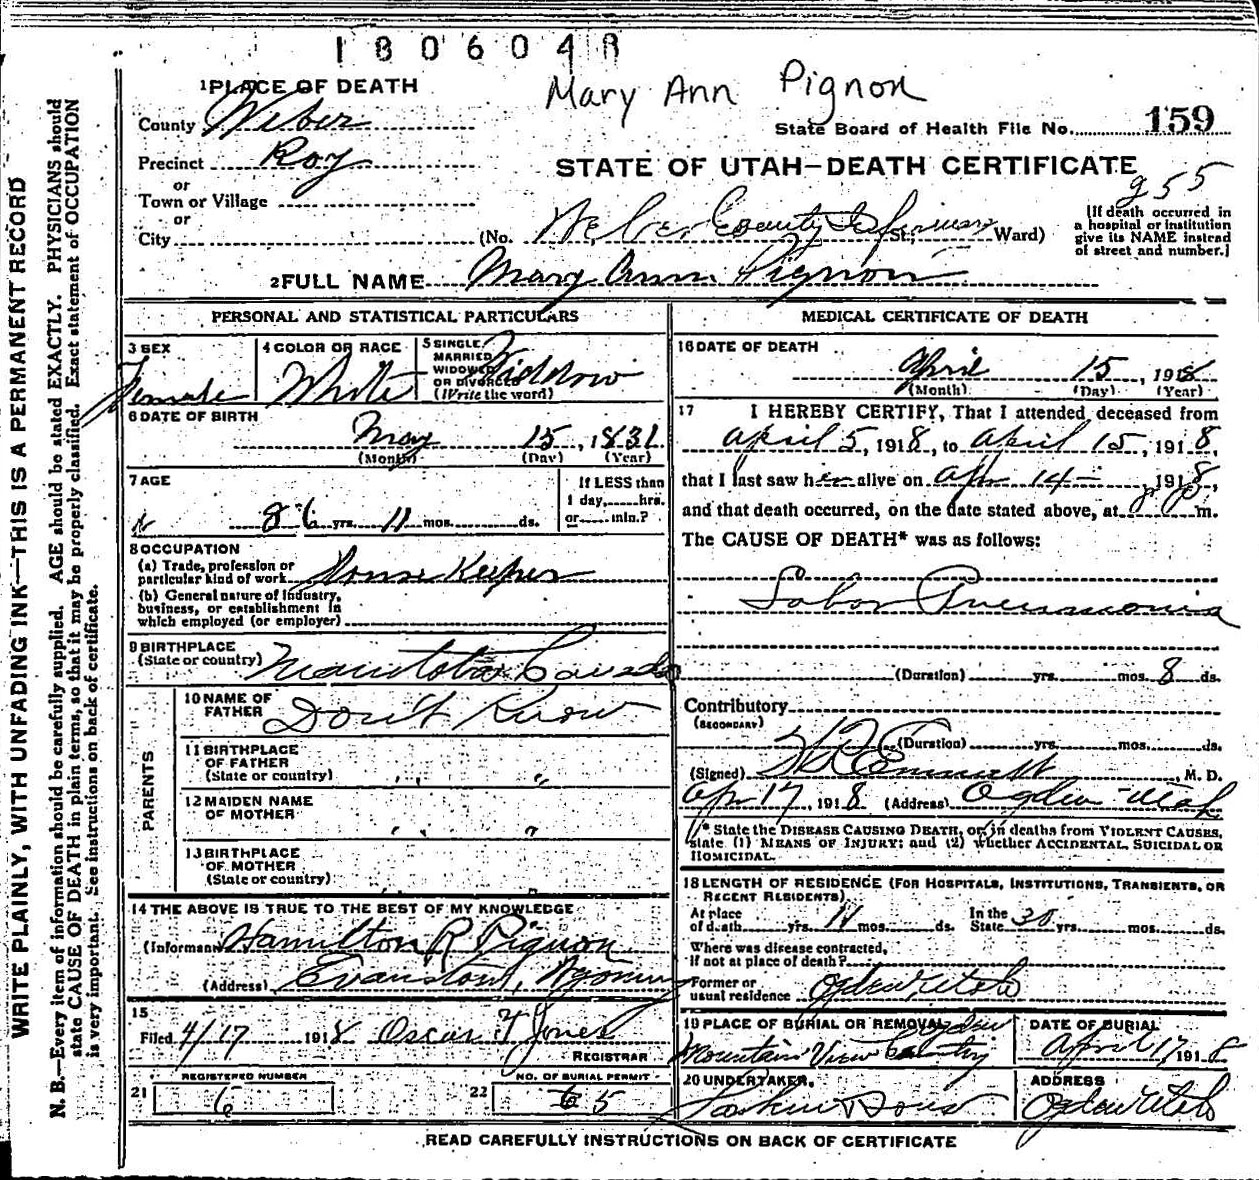 180604R
Mary Ann Pignon
1 PLACE OF DEATH
County Weber
State Board of Health File No. 159
Precinct Roy
STATE OF UTAH—DEATH CERTIFICATE
955
or
Town or Village
or
City
(No. Weber County Infirmary St.; Ward)
(If death occurred in
a hospital or institution
give its NAME instead
of street and number.]
2 FULL NAME Mary Ann Pignon
PERSONAL AND STATISTICAL PARTICULARS
3 SEX
Female
4 COLOR OR RACE
White
5 SINGLE,
MARRIED
WIDOWED
OR DIVORCED
(Write the word)
Widdow
6 DATE OF BIRTH
May 15, 1831
(Month) (Day) (Year)
7 AGE
86 yrs. 11 mos. ds.
If LESS than
1 day, hrs.
or min.?
8 OCCUPATION
(a) Trade, profession or
particular kind of work House Keeper
(b) General nature of Industry,
business, or establishment in
which employed (or employer)
9 BIRTHPLACE
(State or country) Manitoba Canada
PARENTS
10 NAME OF
FATHER Don't Know
11 BIRTHPLACE
OF FATHER
(State or country) " "
12 MAIDEN NAME
OF MOTHER " "
13 BIRTHPLACE
OF MOTHER
(State or country) " "
14 THE ABOVE IS TRUE TO THE BEST OF MY KNOWLEDGE
(Informant Hamilton R Pignon
(Address) Evanston, Wyoming
15
Filed 4/17 1918 Oscar Y Jones
REGISTRAR
REGISTERED NUMBER
21 6
NO. OF BURIAL PERMIT
22 5
MEDICAL CERTIFICATE OF DEATH
16 DATE OF DEATH
April 15, 1918
(Month) (Day) (Year)
17 I HEREBY CERTIFY, That I attended deceased from
April 5, 1918, to April 15, 1918,
that I last saw her alive on Apr 14, 1918,
and that death occurred, on the date stated above, at 8 P m.
The CAUSE OF DEATH* was as follows:
Lobar Pneumonia
(Duration) yrs. mos. 8 ds.
Contributory
(SECONDARY)
(Duration) yrs. mos. ds.
(Signed) Emmett, M. D.
Apr 17, 1918 (Address) Ogden Utah
* State the DISEASE CAUSING DEATH, or, in deaths from VIOLENT CAUSES,
state (1) MEANS OF INJURY; and (2) whether ACCIDENTAL, SUICIDAL OR
HOMICIDAL.
18 LENGTH OF RESIDENCE (FOR HOSPITALS, INSTITUTIONS, TRANSIENTS, OR
RECENT RESIDENTS)
At place
of death yrs. 11 mos. ds.
In the
State 30 yrs. mos. ds.
Where was disease contracted,
if not at place of death?
Former or
usual residence Ogden Utah
19 PLACE OF BURIAL OR REMOVAL Ogden
Mountain View Cemetry
DATE OF BURIAL
April 17, 1918
20 UNDERTAKER,
Larkin & Sons
ADDRESS
Ogden Utah
READ CAREFULLY INSTRUCTIONS ON BACK OF CERTIFICATE
WRITE PLAINLY, WITH UNFADING INK—THIS IS A PERMANENT RECORD
N. B.—Every item of information should be carefully supplied. AGE should be stated EXACTLY. PHYSICIANS should
state CAUSE OF DEATH in plain terms, so that it may be properly classified. Exact statement of OCCUPATION
is very important. See instructions on back of certificate.